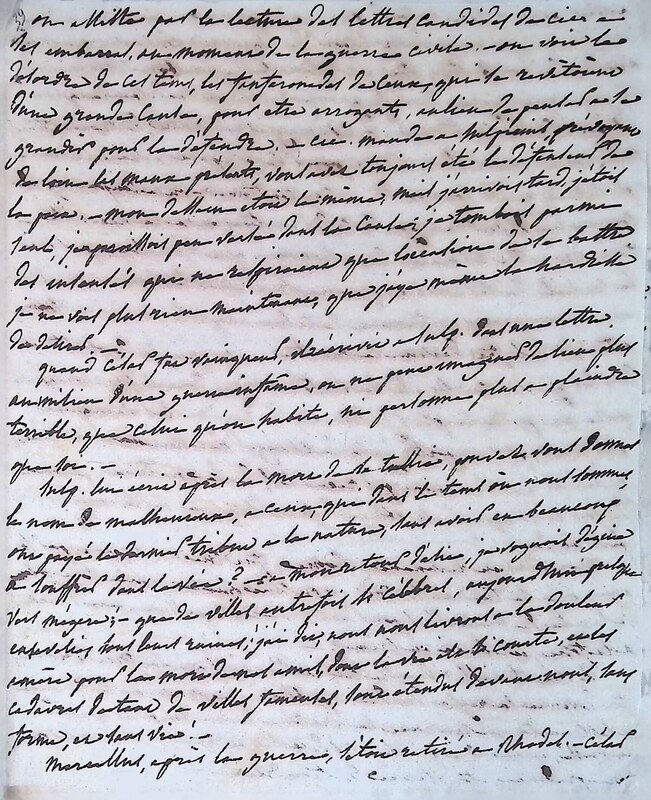 on assiste par la lecture des lettres candides de cice a
ses embarras, au moment de la guerre civile. – on voit le
désordre de ces tems, les fanfaronades de ceux, qui se revêtirent
d'une grande cause, pour être arrogants, au lieu de penser a se
grandir pour la défendre. – cic. mande a Sulpicius prévoyant
de loin les maux présents, vous avez toujours été le défenseur de
la paix. – mon dessein etoit le même, mais j'arrivois tard, j'étois
seul, je paroissois peu versé dans la cause; je tombois parmi
des insensés qui ne respiroient que l'occasion de se battre
je ne vois plus rien maintenant, que j'aye même la hardiesse
de désirer. –
quand César fut vainqueur, il écrivit a Sulp. dans une lettre.
au milieu d'une guerre infâme, on ne peut imaginer de lieu plus
terrible, que celui qu'on habite, ni personne plus a plaindre
que soi. –
Sulp. lui écrit après la mort de sa tullie, pouvez vous donner
le nom de malheureux, a ceux, qui dans le tems où nous sommes
ont payé le dernier tribut a la nature, sans avoir eu beaucoup
a souffrir dans la vie? – a mon retour d'asie, je voguois d'égine
vers mégare; – que de villes autrefois si célèbres, aujourd'hui presque
ensevelies sous leurs ruines; j'ai dit, nous nous livrons a la douleur
amère pour la mort de nos amis, dont la vie est si courte, et les
cadavres de tant de villes fameuses, sont étendus devant nous, sans
forme, et sans vie! –
Marcellus, après la guerre, s'étoit retiré a Rhodes. – César